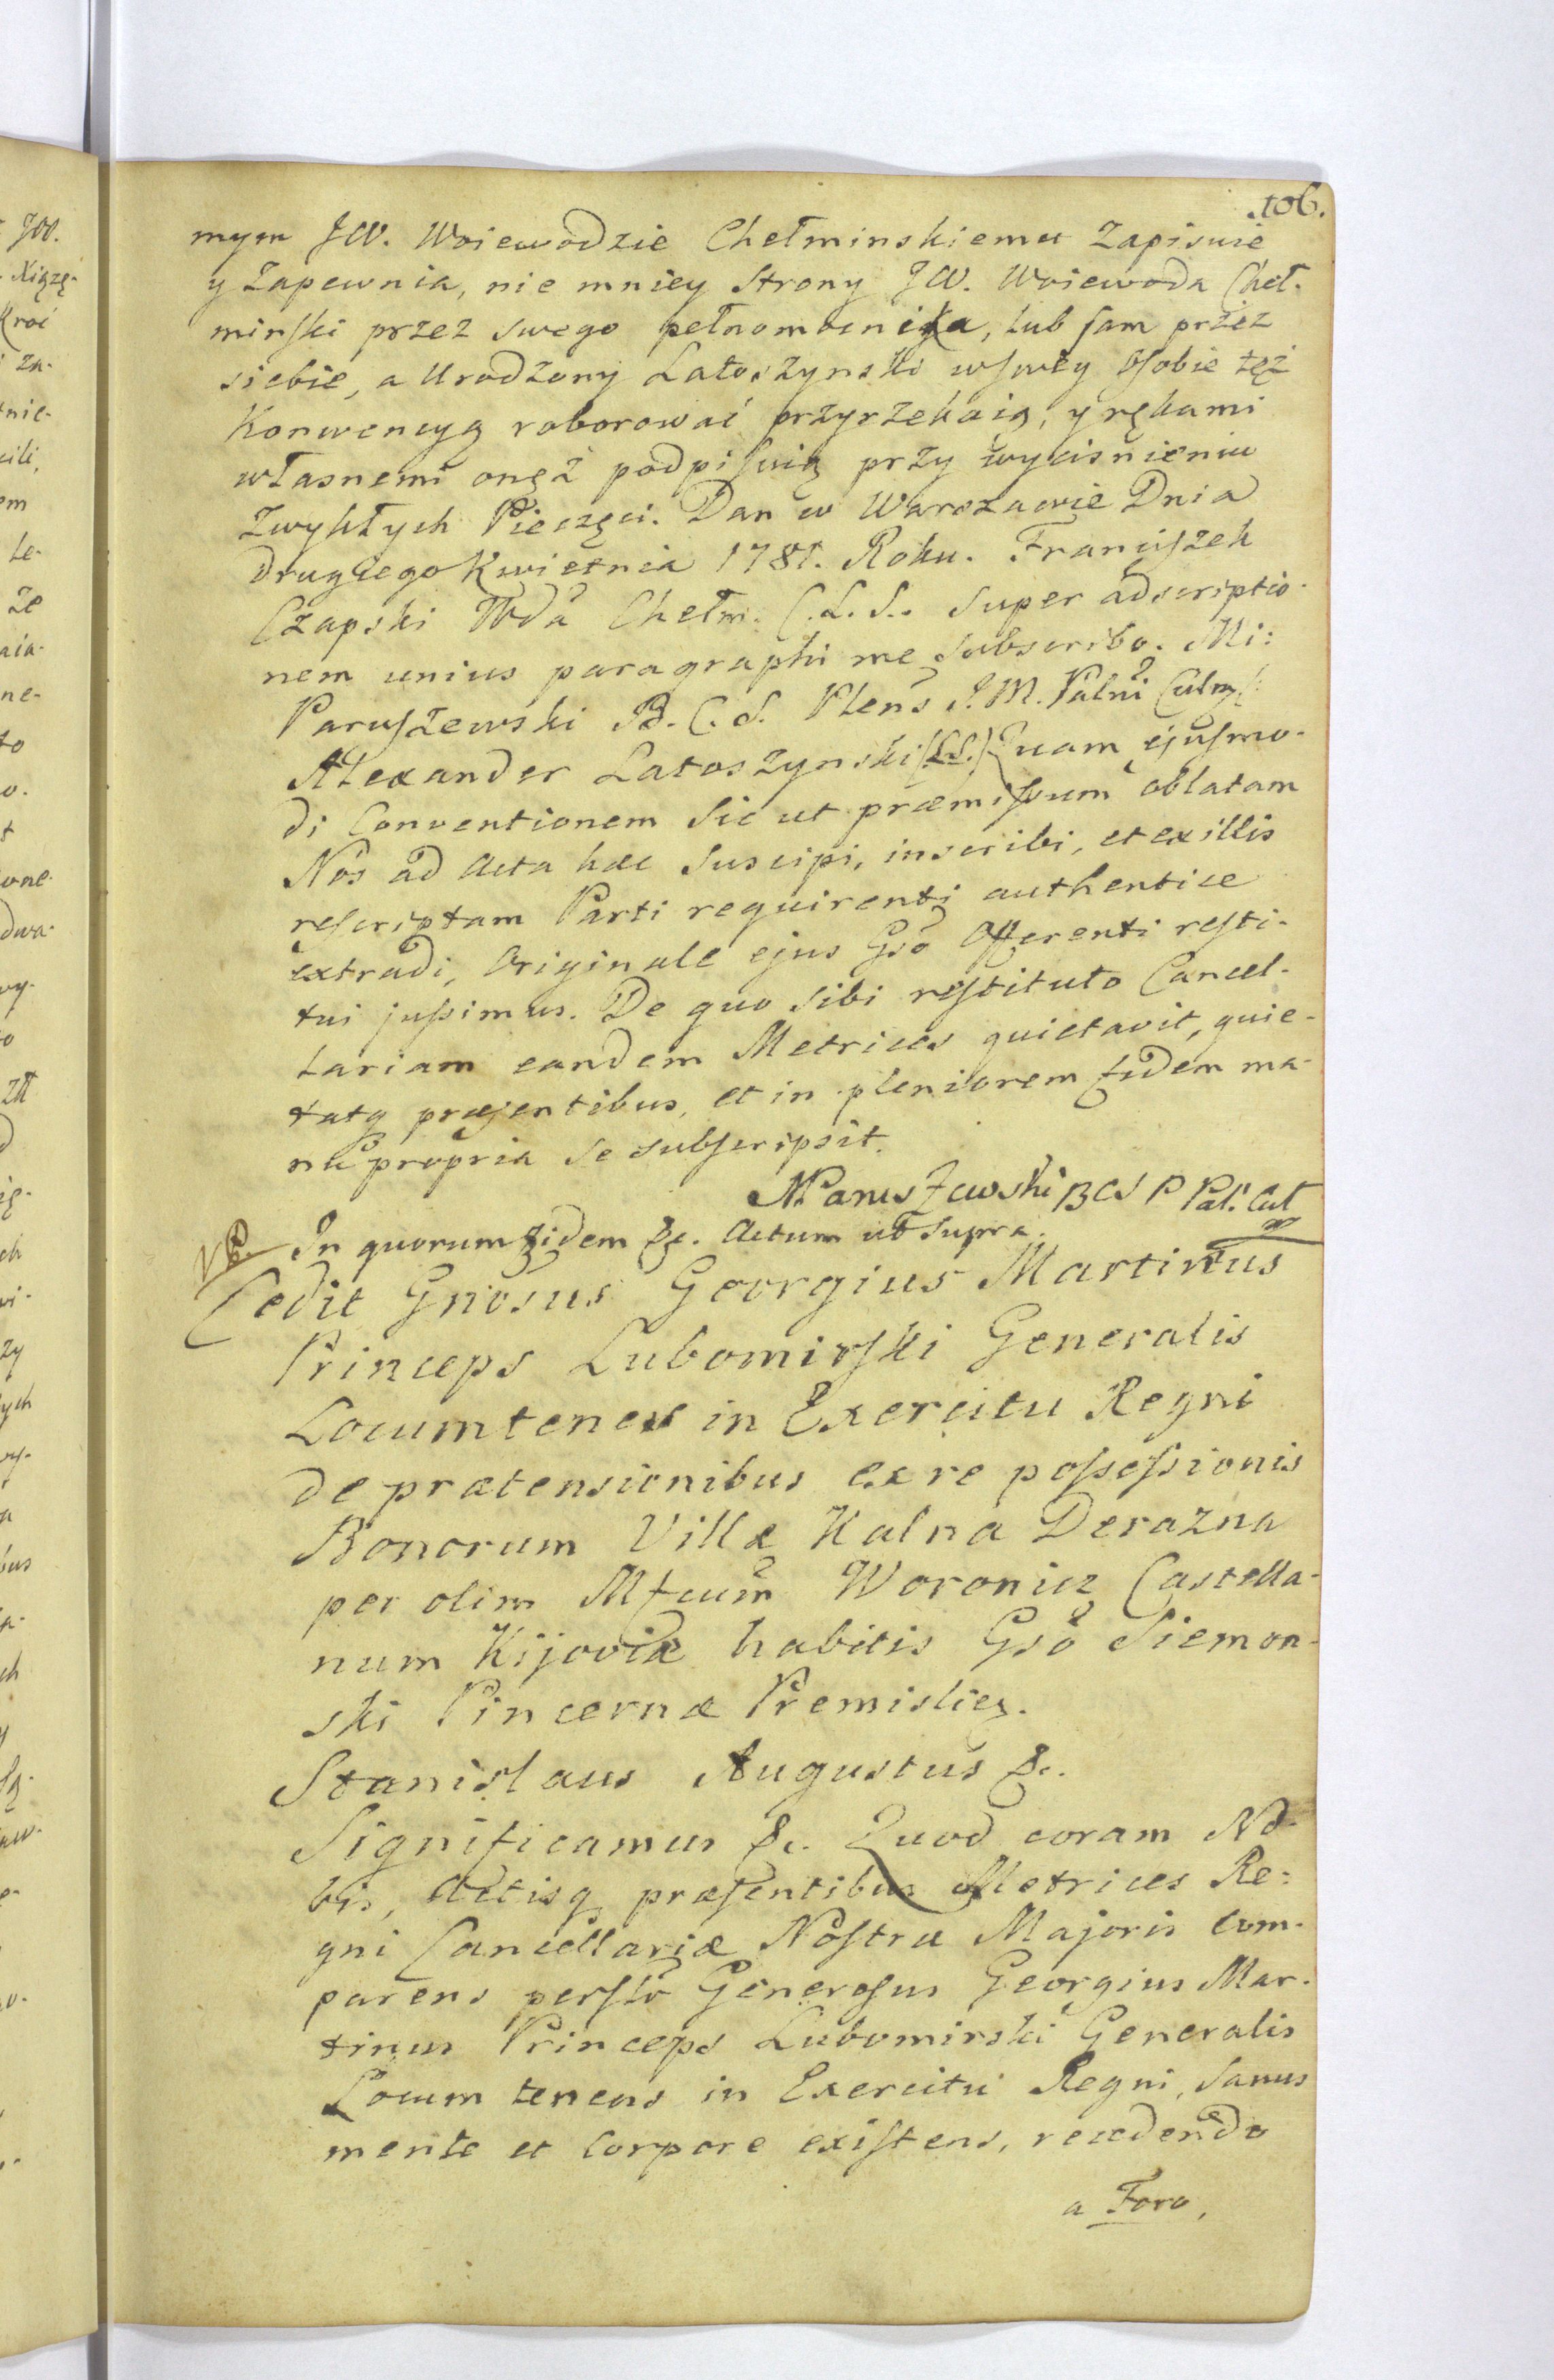 106.
mym JW. Woiewodzie Chełminskiemu Zapisuie
y Zapewnia, nie mniey Strony JW. Woiewoda Cheł-
minski przez swego pełnomocnika, lub sam przez
siebie, a Urodzony Latoszynski w swey Osobie też
Konwencyą roborować przyrzekaią, y rękami
własnemi onęż podpisuią przy wyciśnieniu
Zwykłych Pieczęci. Dan w Warszawie Dnia
Drugiego Kwietnia 1781. Roku. Franciszek
Czapski Wda Chełm. C. L. S. Super adscriptio-
nem unius paragraphi me subscribo. Mi:
Paruszewski B. C. S. Plens J. M. Palni Culm:
Alexander Latoszynski (LS.) Quam ejusmo-
di Conventionem Sic ut præmissum oblatam
Nos ad Acta hæc Suscipi, inscribi, et ex illis
rescriptam Parti requirenti authentice
extradi, Originale ejus Gso Offerenti resti-
tui jussimus. De quo Sibi restituto Cancel-
lariam eandem Metrices quietavit, quie-
tatq præsentibus, et in pleniorem fidem ma-
nu propria Se subscripsit.
MParuszewski BCS P Pal. Cul
m
In quorum fidem &c. Actum ut Supra.
Cedit Gnosus Georgius Martinus
Princeps Lubomirski Generalis
Locumtenens in Exercitu Regni
de prætensionibus ex re possessionis
Bonorum Villæ Kalna Derazna
per olim Mfcum Woronicz Castella-
num Kijoviæ habitis Gso Siemon-
ski Pincernæ Premislien.
Stanislaus Augustus &c.
Significamus &c. Quod coram No-
bis, Actisq præsentibus Metrices Re-
gni Cancellariæ Nostræ Majoris com-
parens persłr Generosus Georgius Mar-
tinus Princeps Lubomirski Generalis
Locum tenens in Exercitu Regni, Sanus
mente et Corpore existens, recedendo
a Foro,